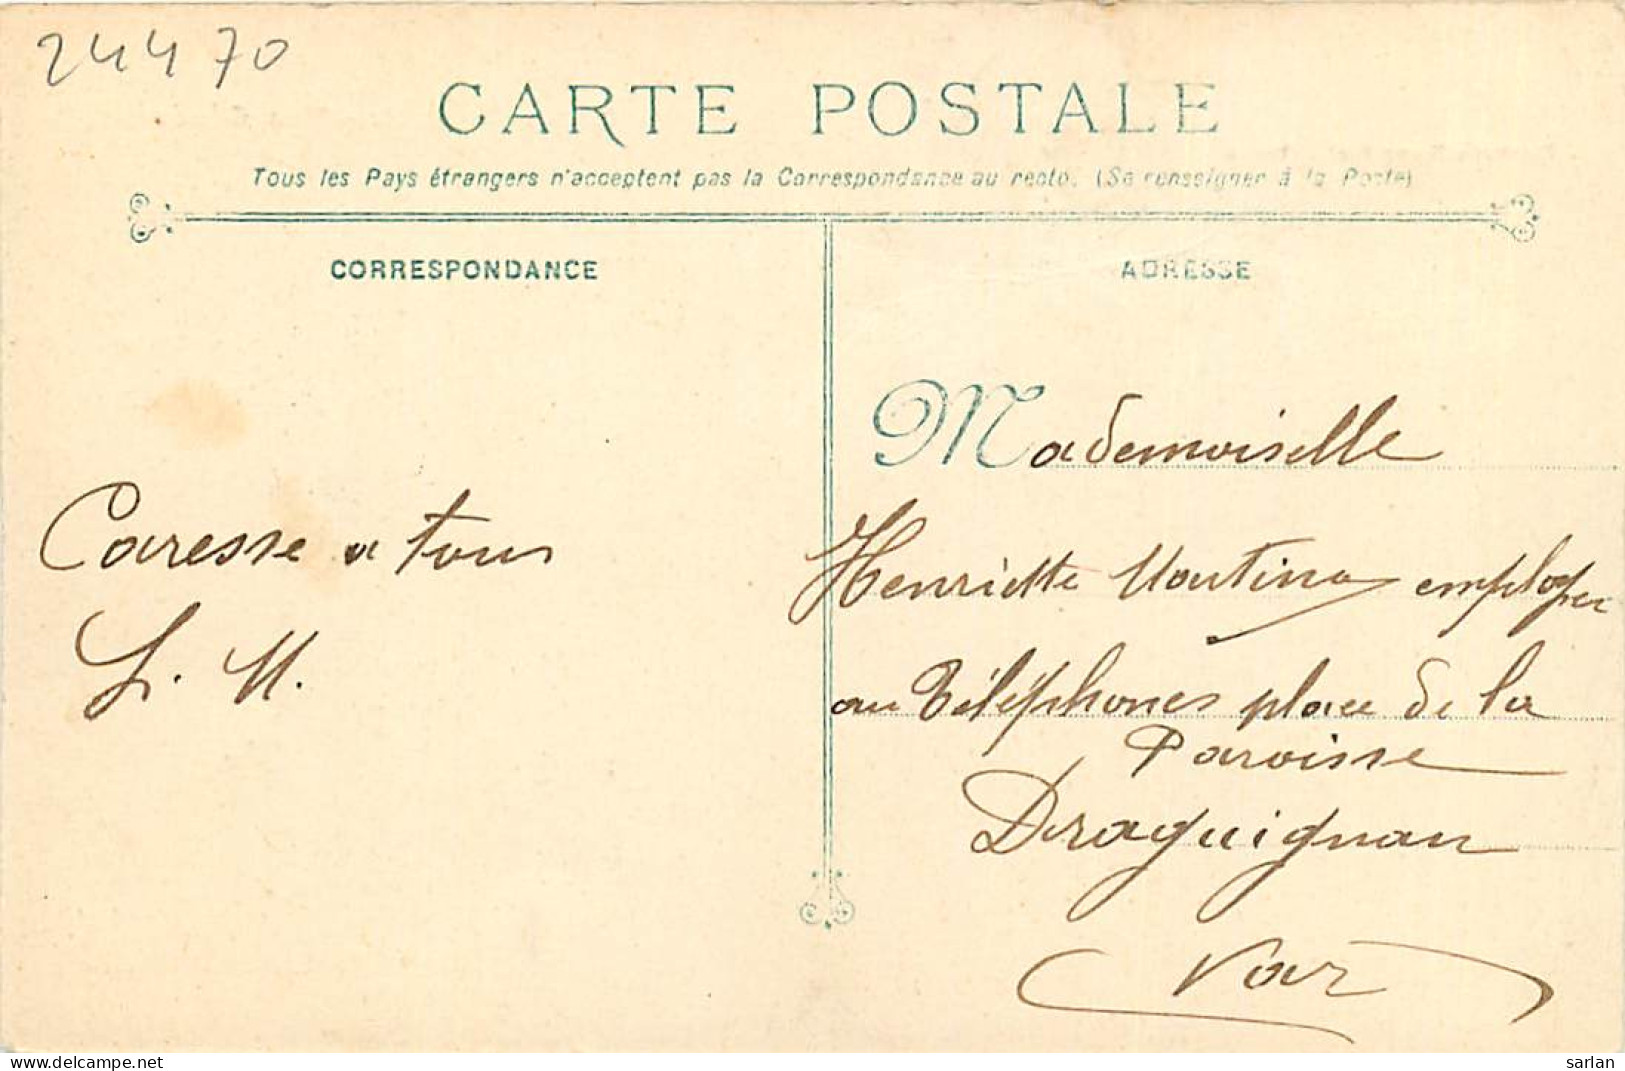 24470
CARTE POSTALE
Tous les Pays étrangers n'acceptent pas la Correspondance au recto. (Se renseigner à la Poste)
CORRESPONDANCE
ADRESSE
Mademoiselle
Caresse a tous
Henriette employée
L. M.
au Téléphones place de la
Paroisse
Draguignan
Var
sarlan